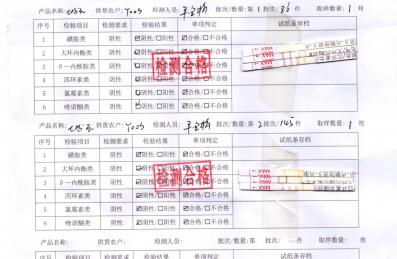 产品名称: 供货农户: Y005 检测人员: 批次/数量: 第1批次 86 件 取样数量: 1 枚
序号 检验项目 检测要求 检验结果 单项判定 试纸条存档
1 磺胺类 阴性 ☑阴性/□阳性 ☑合格/□不合格
2 大环内酯类 阴性 ☑阴性/□阳性 ☑合格/□不合格
3 β—内酰胺类 阴性 ☑阴性/□阳性 ☑合格/□不合格
4 四环素类 阴性 ☑阴性/□阳性 ☑合格/□不合格
5 氯霉素类 阴性 ☑阴性/□阳性 ☑合格/□不合格
6 喹诺酮类 阴性 ☑阴性/□阳性 ☑合格/□不合格
检测合格
产品名称: 供货农户: Y005 检测人员: 批次/数量: 第2批次 145 件 取样数量: 1 枚
序号 检验项目 检测要求 检验结果 单项判定 试纸条存档
1 磺胺类 阴性 ☑阴性/□阳性 ☑合格/□不合格
2 大环内酯类 阴性 ☑阴性/□阳性 ☑合格/□不合格
3 β—内酰胺类 阴性 ☑阴性/□阳性 ☑合格/□不合格
4 四环素类 阴性 ☑阴性/□阳性 ☑合格/□不合格
5 氯霉素类 阴性 ☑阴性/□阳性 ☑合格/□不合格
6 喹诺酮类 阴性 ☑阴性/□阳性 ☑合格/□不合格
检测合格
产品名称: 供货农户: 检测人员: 批次/数量: 第 批次 件 取样数量: 枚
序号 检验项目 检测要求 检验结果 单项判定 试纸条存档